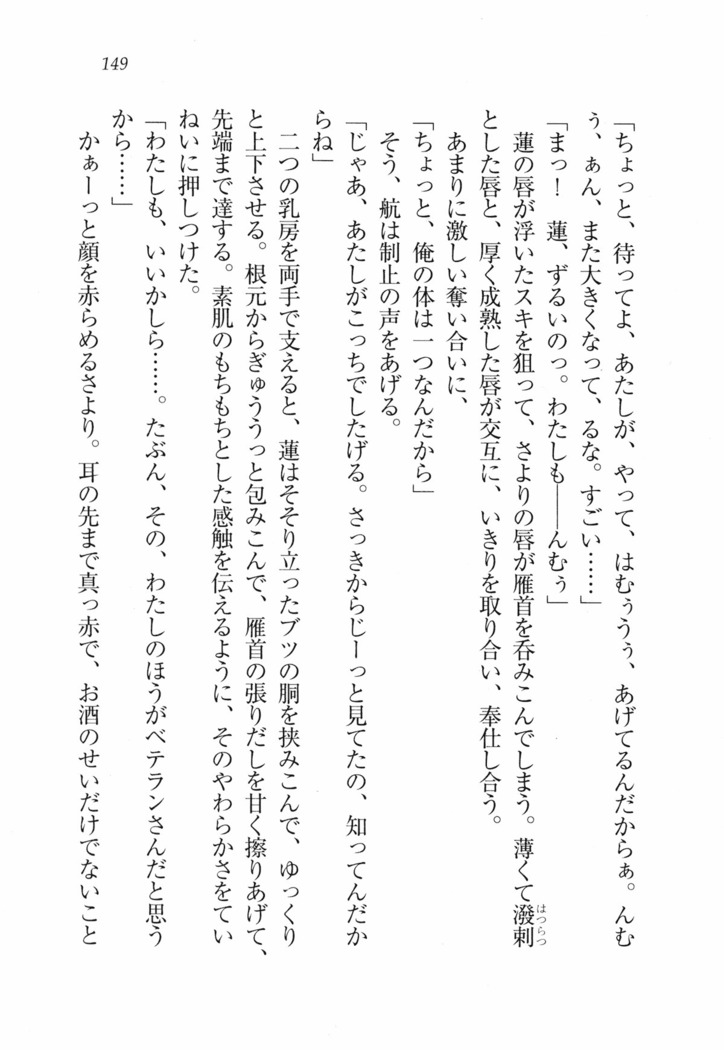 149
「ちょっと、待ってよ、あたしが、やって、はむぅうぅ、あげてるんだからぁ。んむ
ぅ、ぁん、また大きくなって、るな。すごい……」
「まっ！　蓮、ずるいのっ。わたしも――んむぅ」
蓮の唇が浮いたスキを狙って、さよりの唇が雁首を呑みこんでしまう。薄くて潑剌
はつらつ
とした唇と、厚く成熟した唇が交互に、いきりを取り合い、奉仕し合う。
あまりに激しい奪い合いに、
「ちょっと、俺の体は一つなんだから」
そう、航は制止の声をあげる。
「じゃあ、あたしがこっちでしたげる。さっきからじーっと見てたの、知ってんだか
らね」
二つの乳房を両手で支えると、蓮はそそり立ったブツの胴を挟みこんで、ゆっくり
と上下させる。根元からぎゅううっと包みこんで、雁首の張りだしを甘く擦りあげて、
先端まで達する。素肌のもちもちとした感触を伝えるように、そのやわらかさをてい
ねいに押しつけた。
「わたしも、いいかしら……。たぶん、その、わたしのほうがベテランさんだと思う
から……」
かぁーっと顔を赤らめるさより。耳の先まで真っ赤で、お酒のせいだけでないこと